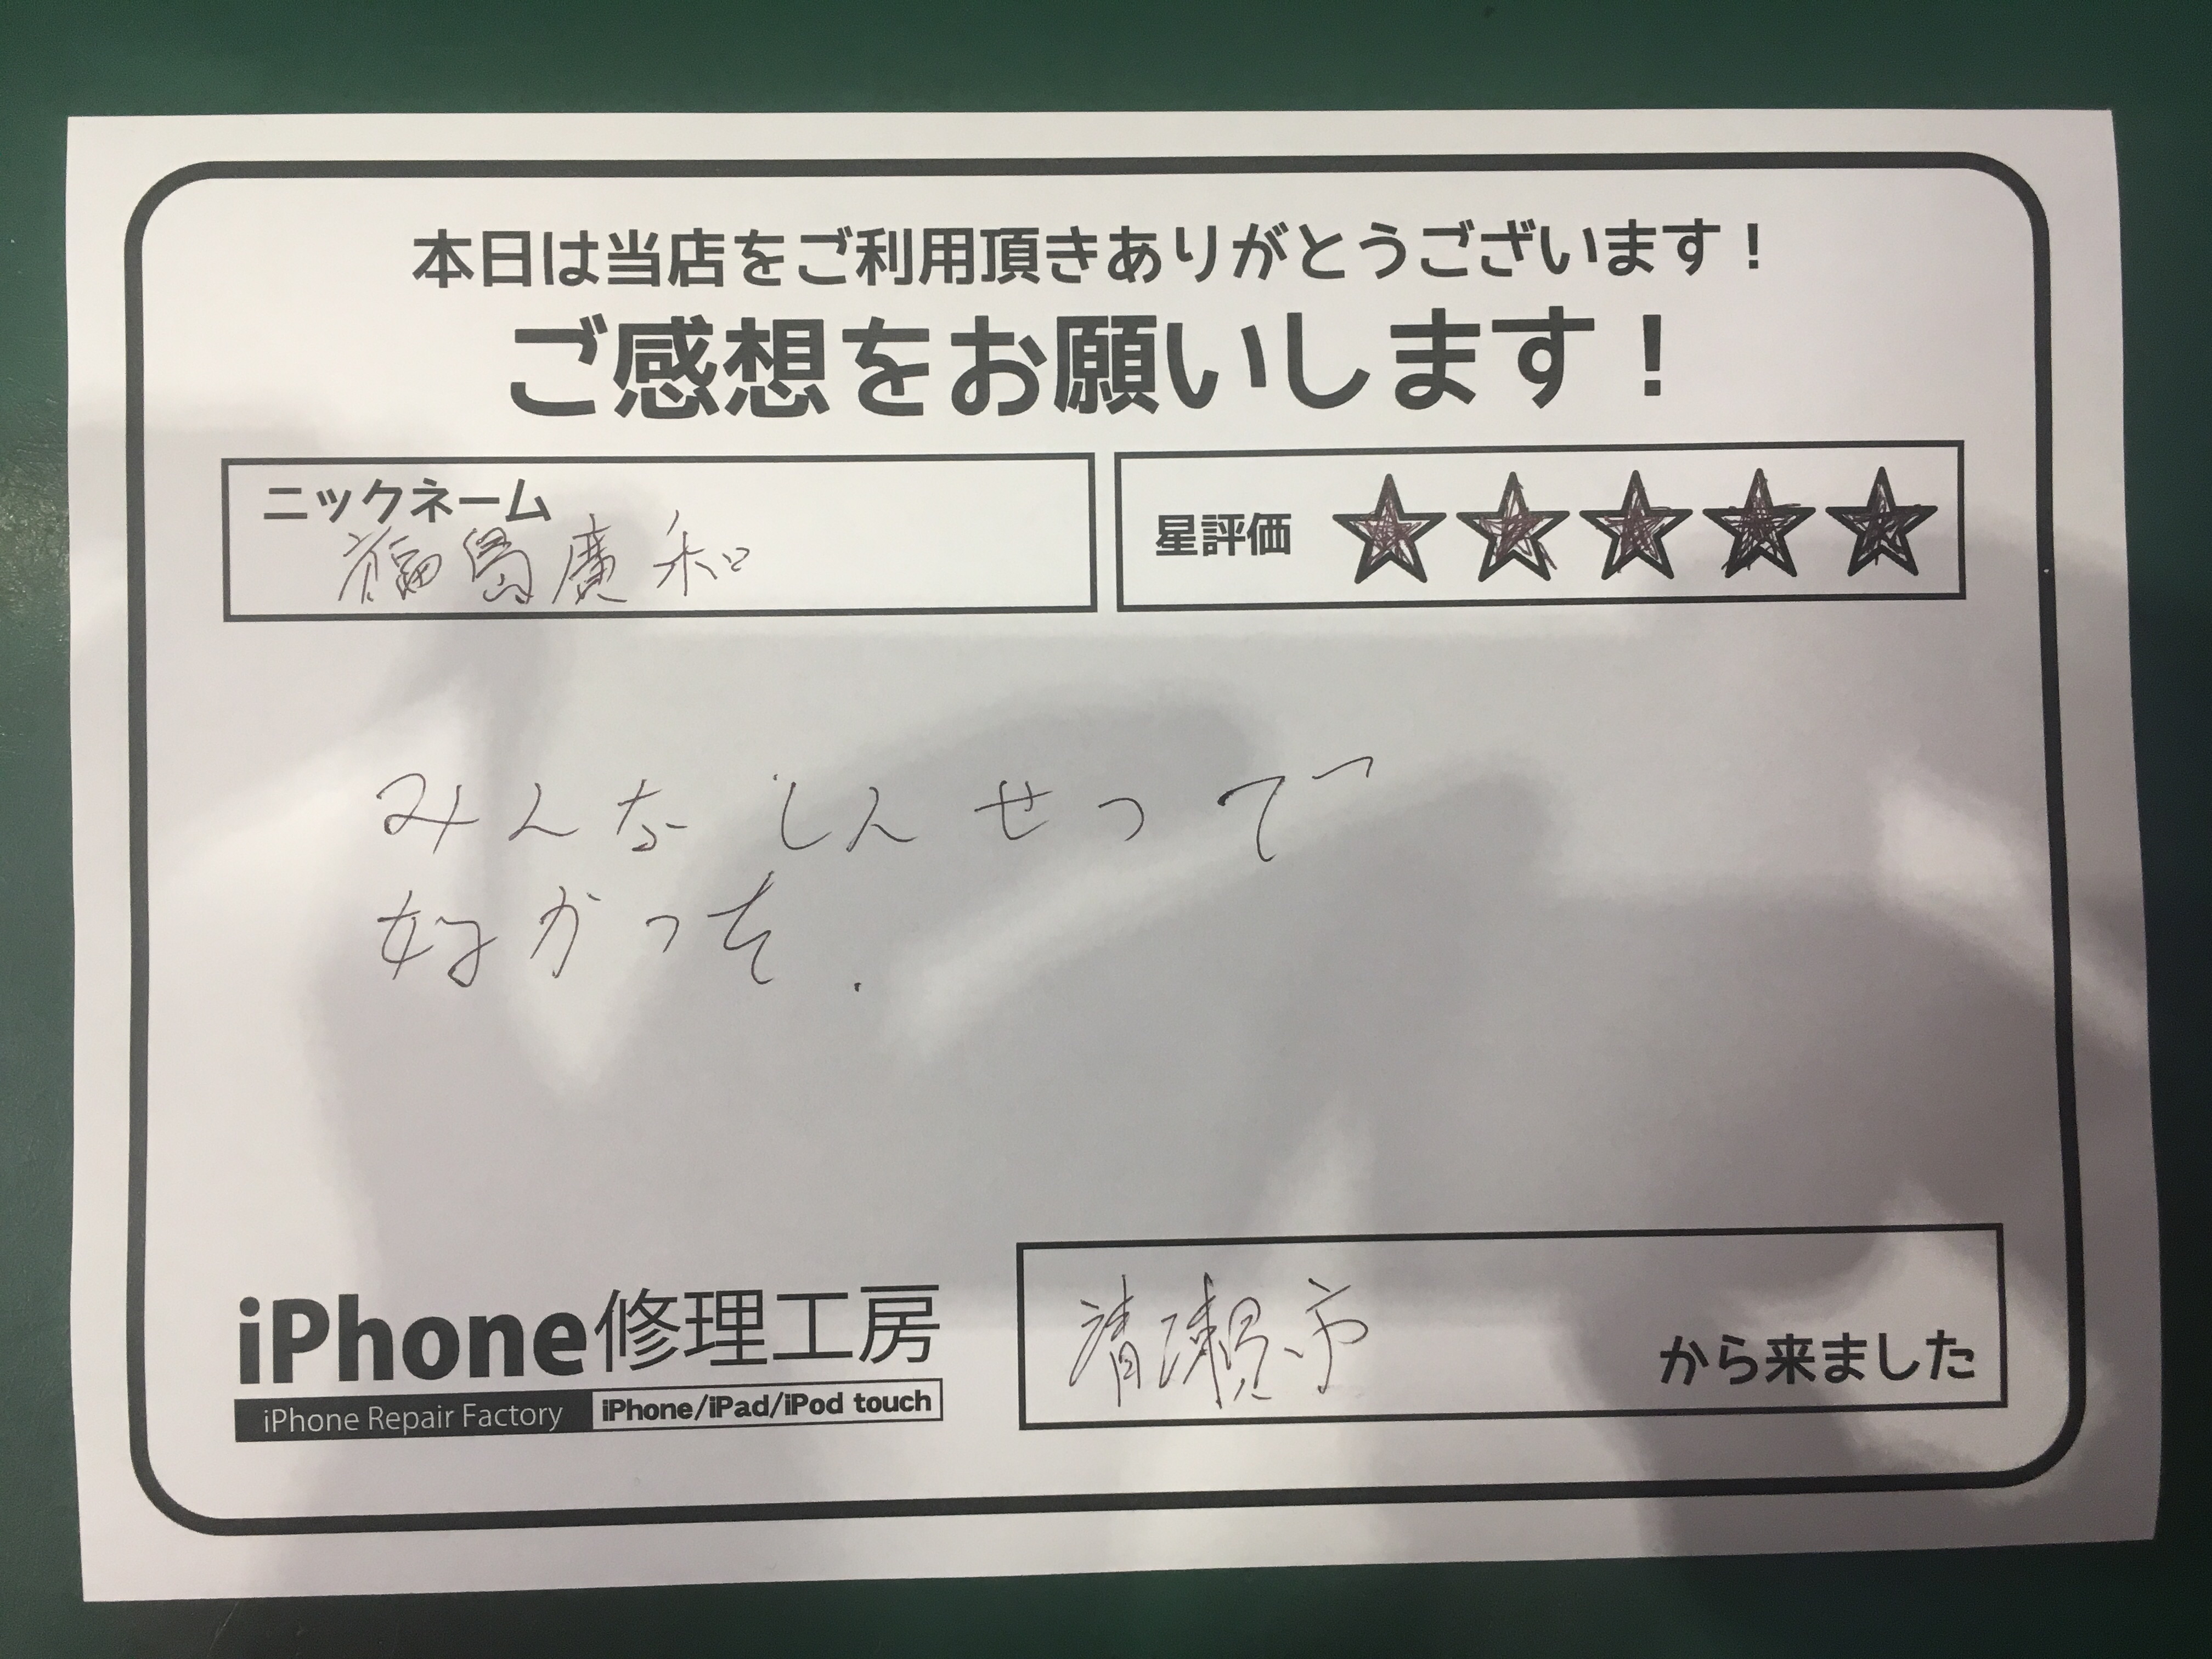 本日は当店をご利用頂きありがとうございます!
ご感想をお願いします!
ニックネーム
福島廣和
星評価 ★★★★★
みんなしんせつで
好かった.
iPhone修理工房
iPhone Repair Factory iPhone/iPad/iPod touch
清瀬市 から来ました